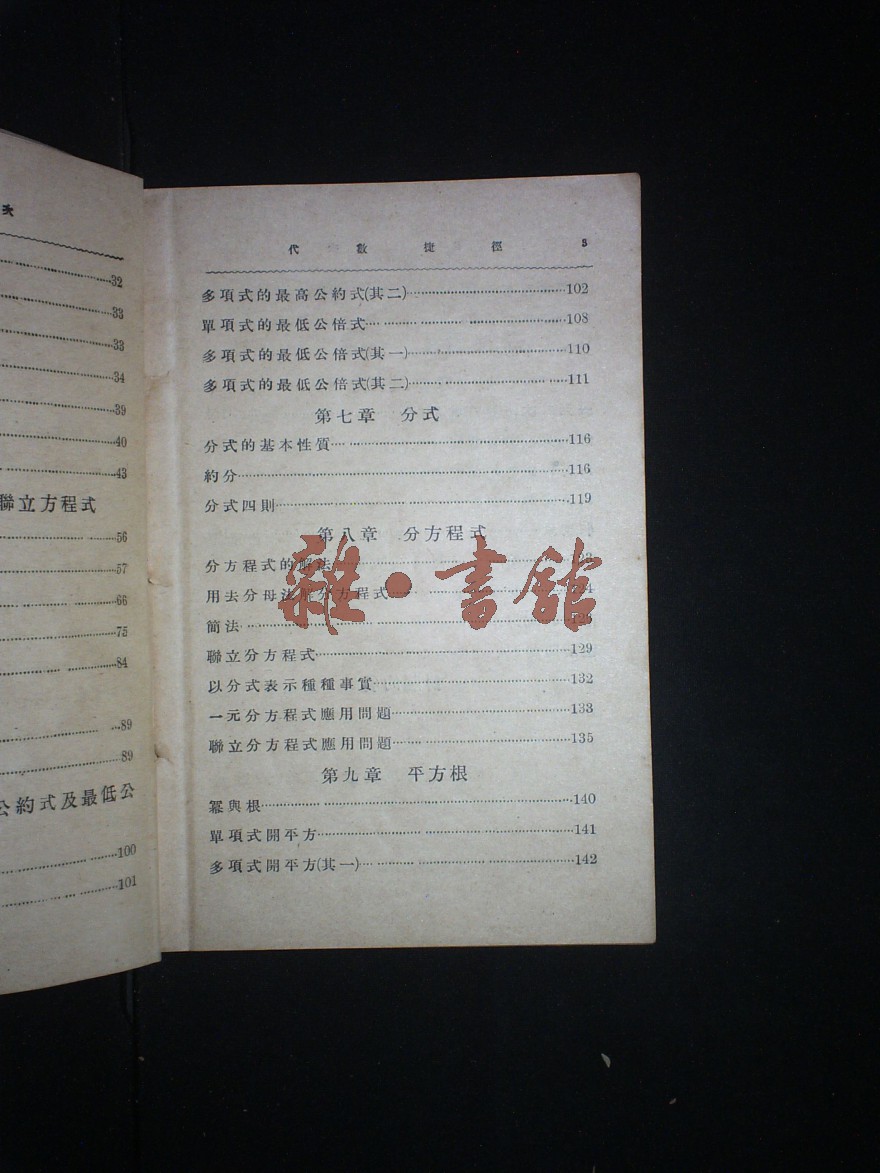 次
32
33
33
34
39
40
43
聯立方程式
56
57
66
75
84
89
89
公約式及最低公
100
101
代數捷徑 3
多項式的最高公約式(其二)……102
單項式的最低公倍式……108
多項式的最低公倍式(其一)……110
多項式的最低公倍式(其二)……111
第七章 分式
分式的基本性質……116
約分……116
分式四則……119
第八章 分方程式
分方程式的解法
用去分母法解分方程式
簡法
聯立分方程式……129
以分式表示種種事實……132
一元分方程式應用問題……133
聯立分方程式應用問題……135
第九章 平方根
冪與根……140
單項式開平方……141
多項式開平方(其一)……142
雜·書館